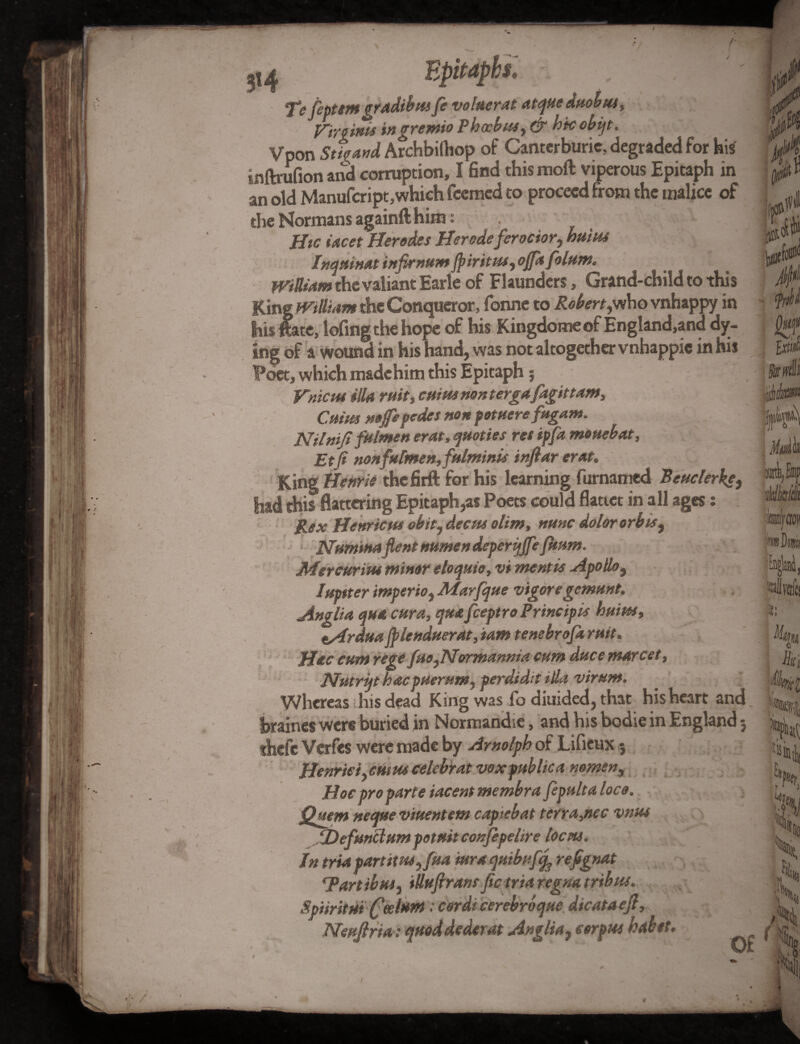 314 Epitaphs.
Te septem gradibus se voluerat atque duobus,
Virginis in gremio Phœbus, & hic obijt.
Vpon Stigand Archbishop of Canterburie, degraded for his
instrusion and corruption, I find this most viperous Epitaph in
an old Manuscript, which seemed to proceed from the malice of
the Normans against him:
Hic iacet Herodes Herode ferocior, huius
Inquinat infirnum spiritus, ossa solum.
William the valiant Earle of Flaunders, Grand-child to this
King William the Conqueror, sonne to Robert, who vnhappy in
his state, losing the hope of his Kingdome of England, and dy-
ing of a wound in his hand, was not altogether vnhappie in his
Poet, which made him this Epitaph;
Vnicus illa ruit, cuius non terga sagittam,
Cuius nosse pedes non potuere fugam.
Nil nisi fulmen erat, quoties res ipsa mouebat,
Et si non fulmen, fulminis instar erat.
King Henrie the first for his learning surnamed Beuclerke,
had this flattering Epitaph, as Poets could flatter in all ages:
Rex Henricus obit, decus olim, nunc dolor orbis,
Numina flent numen deperijsse suum.
Mercurius minor eloquio, vi mentis Apollo,
Iupiter imperio, Marsque vigore gemunt.
Anglia quæ cura, quæ sceptro Principis huius,
Ardua splenduerat, iam tenebrosa ruit.
Hæc cum rege suo, Normannia cum duce marcet,
Nutrijt hæc puerum, perdidit illa virum.
Whereas his dead King was so diuided, that his heart and
braines were buried in Normandie, and his bodie in England;
these Verses were made by Arnolph of Lisieux;
Henrici, cuius celebrat vox publica nomen,
Hoc pro parte iacent membra sepulta loco.
Quem neque viuentem capiebat terra, nec vnus
Defunctum potuit consepelire locus.
In tria partitus, sua iura quibusq; resignat
Partibus, illustrans sic tria regna tribus.
Spiiritui Cœlum: cordi cerebróque dicata est,
Neustria: quod dederat Anglia, corpus habet.
Of